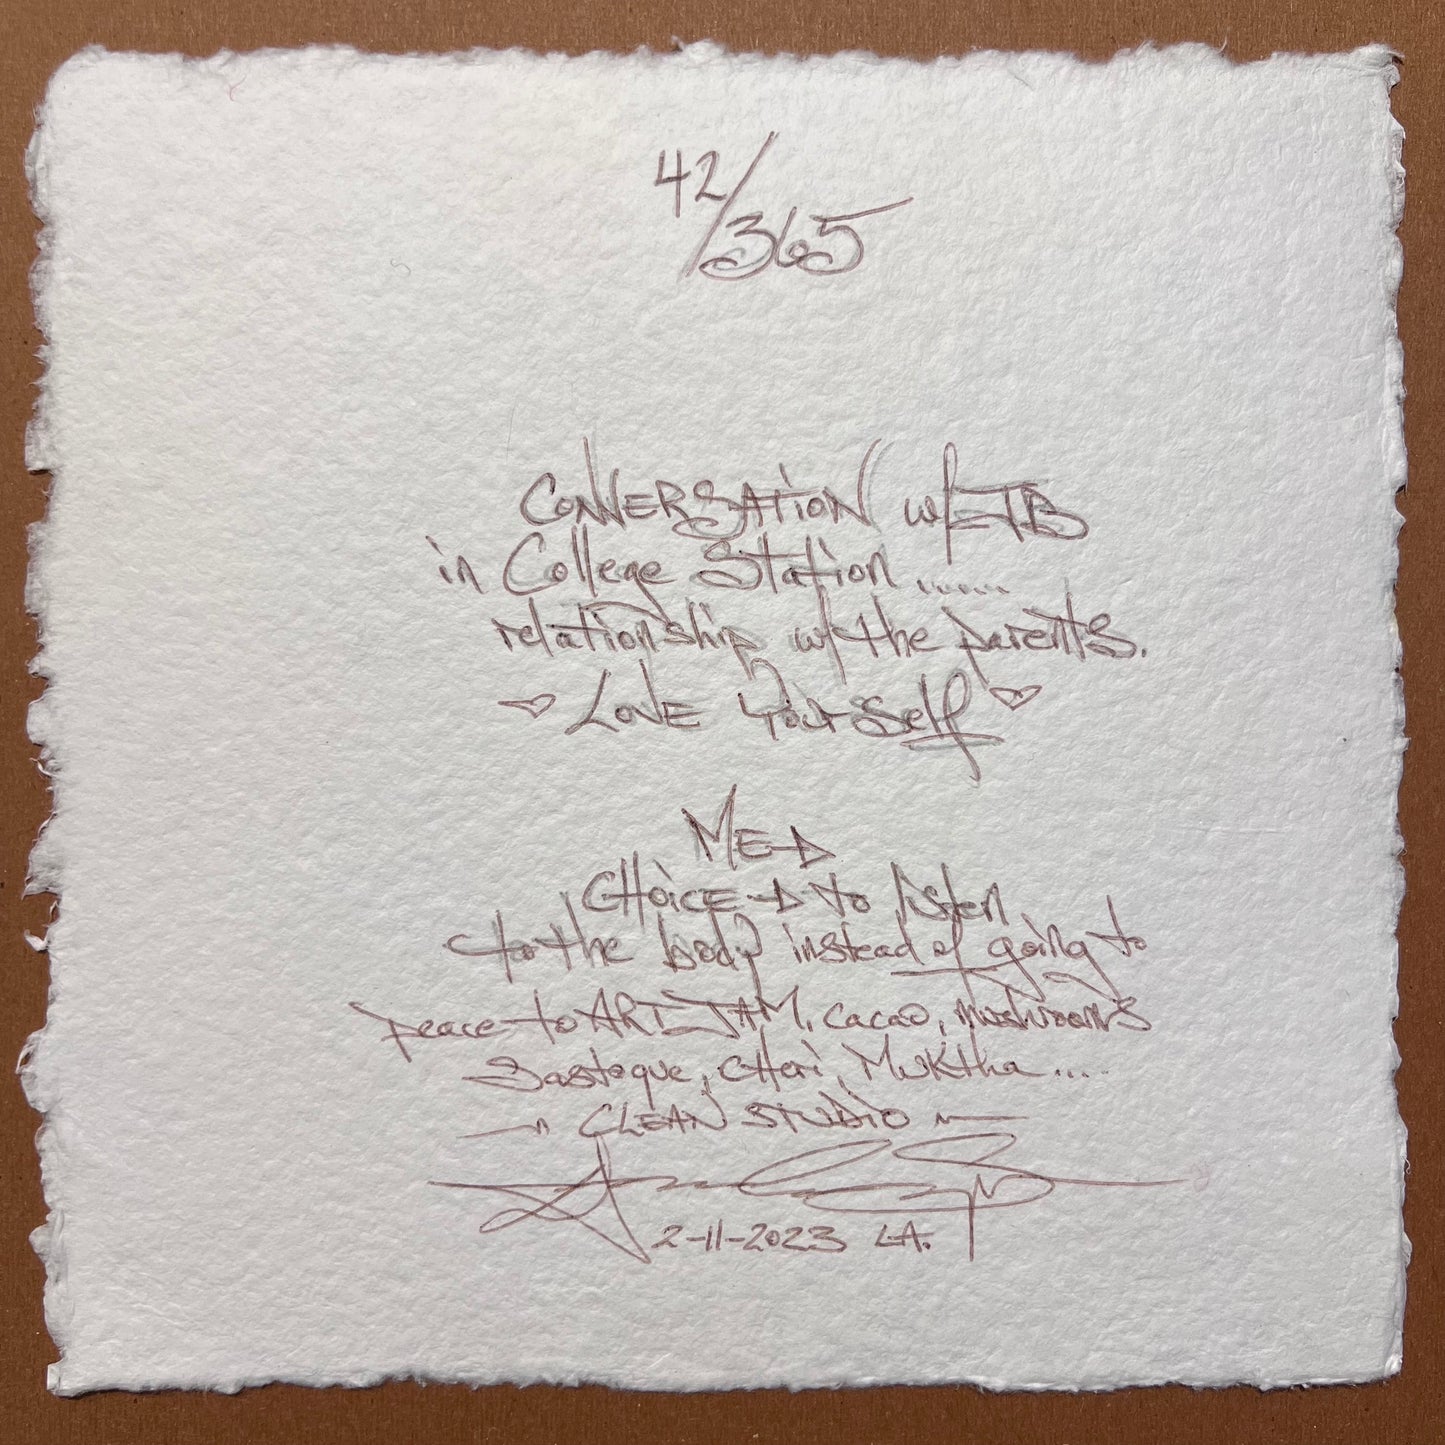 42/365
CONVERSATION w/ TB
in College Station ......
relationship w/ the parents.
♡ LOVE YourSelf ♡
ME →
CHOICE → to listen
to the body instead of going to
peace to ART JAM, cacao, mushrooms
Sasteque, CHeri, MUKtha ....
CLEAN STUDIO
2-11-2023 L.A.